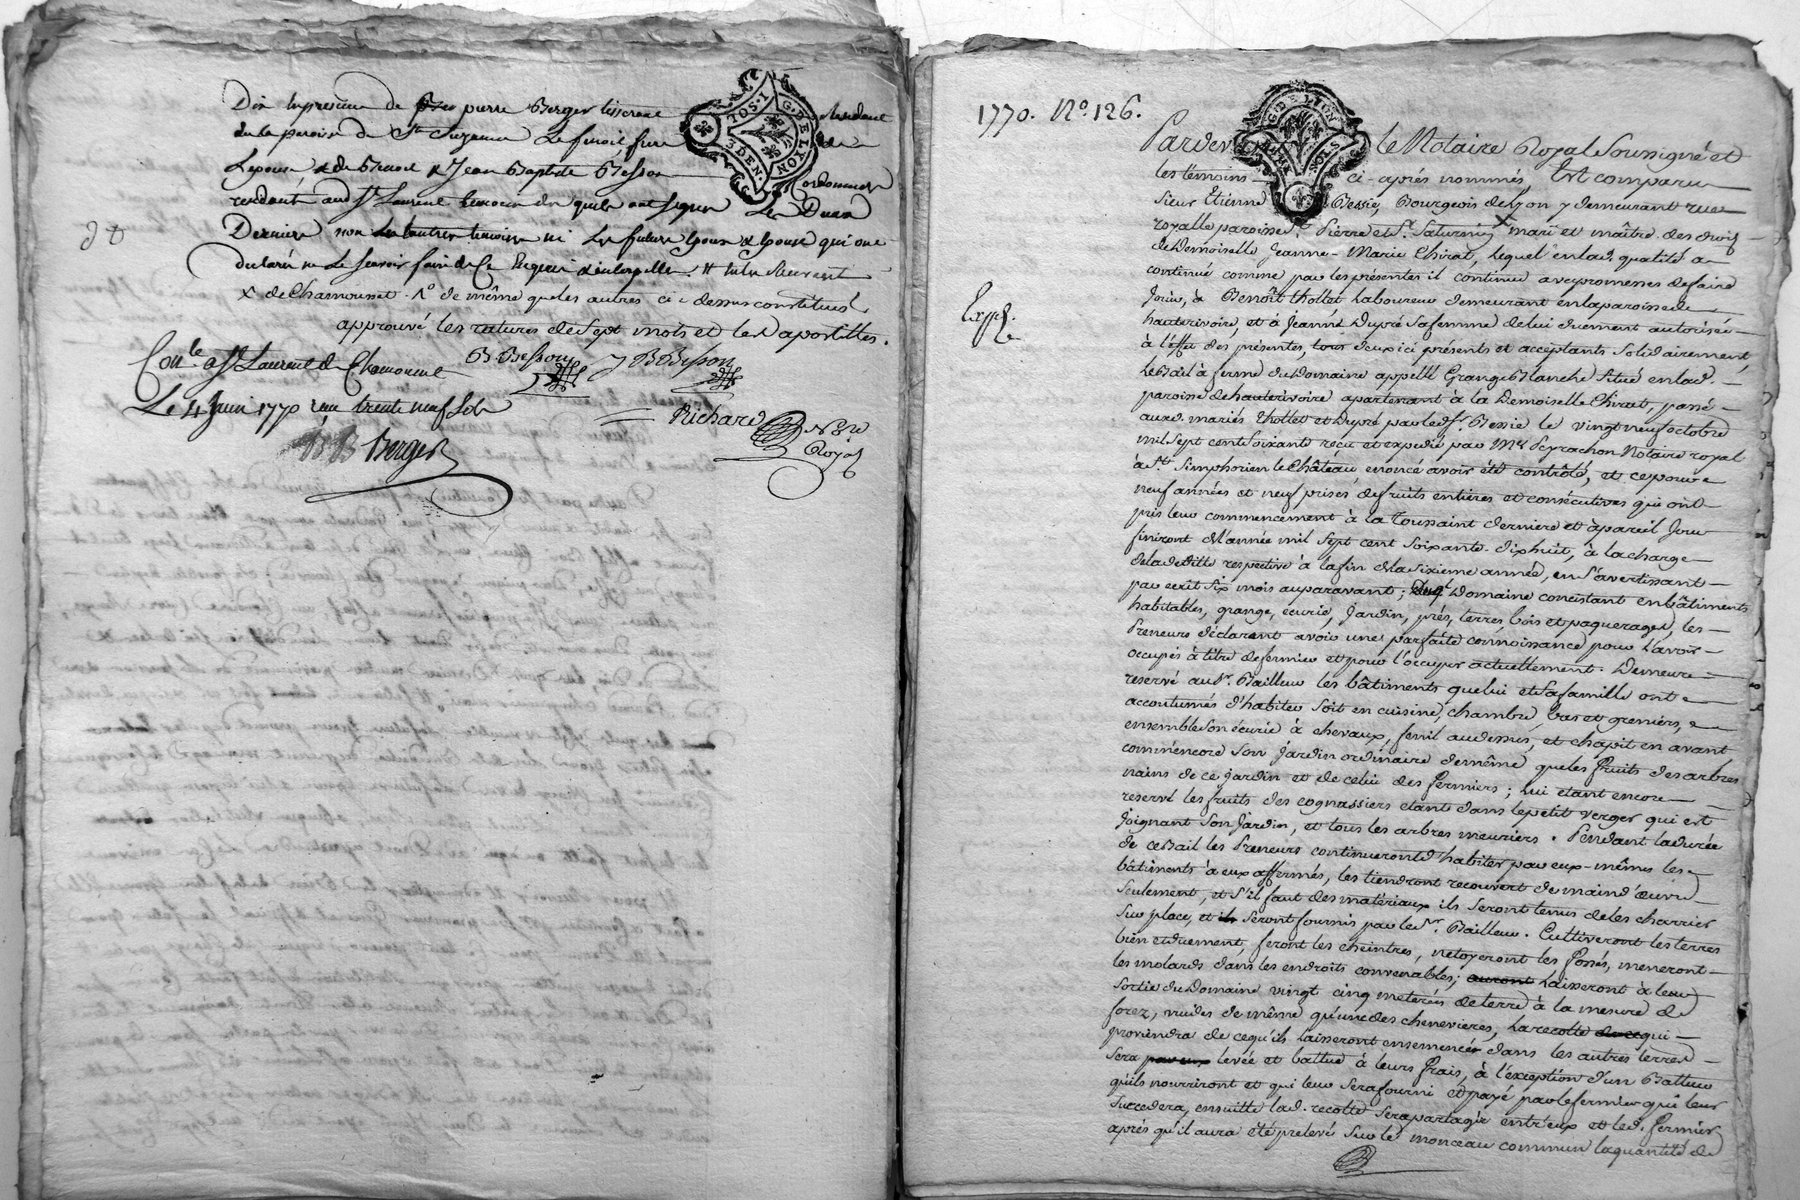 Dix en présence de pierre Berger tisserand
de la paroisse de Ste Suzanne
Lepouse & de Benoit & Jean Baptiste Besson
Cordonnier
résidants aud. St Laurent temoins
Derniers non ni Les futurs époux & épouse qui ont
declaré ne le scavoir faire de ce enquis & interpellés.
X de Chamousset. de même que les autres ci-dessus constitués
approuvé les ratures de Sept mots et les apostilles.
Conlé a St Laurent de Chamousset
B Besson J B Besson
Le 4 Juin 1770 reçu trente neuf sols
Richard Nore
Royal
Berger
TOS. I G. DE LYON 3 DEN.
1770. No. 126.
G. DE LION
Pardevant le Notaire Royal Soussigné et
les témoins ci-après nommés, Est comparu
Sieur Etienne Bessie, Bourgeois de Lyon y demeurant rue
royalle paroisse St. Pierre et St. Saturnin X mari et maître des droits
de Demoiselle Jeanne-Marie Chirat, lequel en lad. qualité a
continué comme par les présentes il continue avec promesses de faire
Jouir, à Benoît thollet Laboureur demeurant en la paroisse de
Expé.
hauterivoire, et à Jeanne Dupré sa femme de lui duement autorisée
à l'effet des présentes, tous deux ici présents et acceptants solidairement,
Le Bail à ferme du Domaine appellé Grange Blanche situé en lad.
paroisse de hauterivoire apartenant à la Demoiselle Chirat, passé
auxd. mariés thollet et Dupré par led. Sr. Bessie le vingt neuf octobre
mil sept cent soixante reçu et expédié par Me Peyrachon Notaire royal
à St. Simphorien le Château énoncé avoir été contrôlé, et ce pour
neuf années et neuf prises de fruits entières et consécutives qui ont
pris leur commencement à la Toussaint derniere et à pareil Jour
finiront de l'année mil sept cent soixante-dixhuit, à la charge
de la dedite respective à la fin de la sixieme année, en s'avertissant
par écrit six mois auparavant; Domaine concistant en bâtiments
habitables, grange, écurie, Jardin, prés, terres, bois et paquerages, les
Preneurs déclarent avoir une parfaite connoissance pour l'avoir
occupés à titre de fermier et pour l'occuper actuellement. Demeure
reservé aud. Sr. Bailleur les bâtiments que lui et sa famille ont
accoutumés d'habiter soit en cuisine, chambre, bas et greniers,
ensemble son écurie à chevaux, fenil au dessus, et chapit en avant
comm'encore son Jardin ordinaire de même que les fruits des arbres
nains de ce jardin et de celui des fermiers; lui etant encore
reservé les fruits des cognassiers etant dans le petit verger qui est
Joignant son Jardin, et tous les arbres meuriers. Pendant la durée
de ce Bail les Preneurs continueront d'habiter par eux-mêmes les
bâtiments à eux affermés, les tiendront recouvert de main d'œuvre
seulement, et s'il faut des matériaux ils seront tenus de les charrier
sur place, et ils seront fournis par led. Sr. Bailleur. Cultiveront les terres
bien et duement, feront les cheintres, netoyeront les Fossés, meneront
les molards dans les endroits convenables; auront Laisseront à leur
sortie du Domaine vingt cinq meterées de terre à la mesure de
forez, vuides de même qu'une des chenevieres, la recolte de ce qui
proviendra de ce qu'ils laisseront ensemencé dans les autres terres
sera par eux levée et battue à leurs frais, à l'exception d'un Batteur
qu'ils nourriront et qui leur sera fourni et payé par le fermier qui leur
succedera, ensuitte lad. recolte sera partagée entr'eux et led. fermier
après qu'il aura été prelevé sur le monceau commun la quantité de